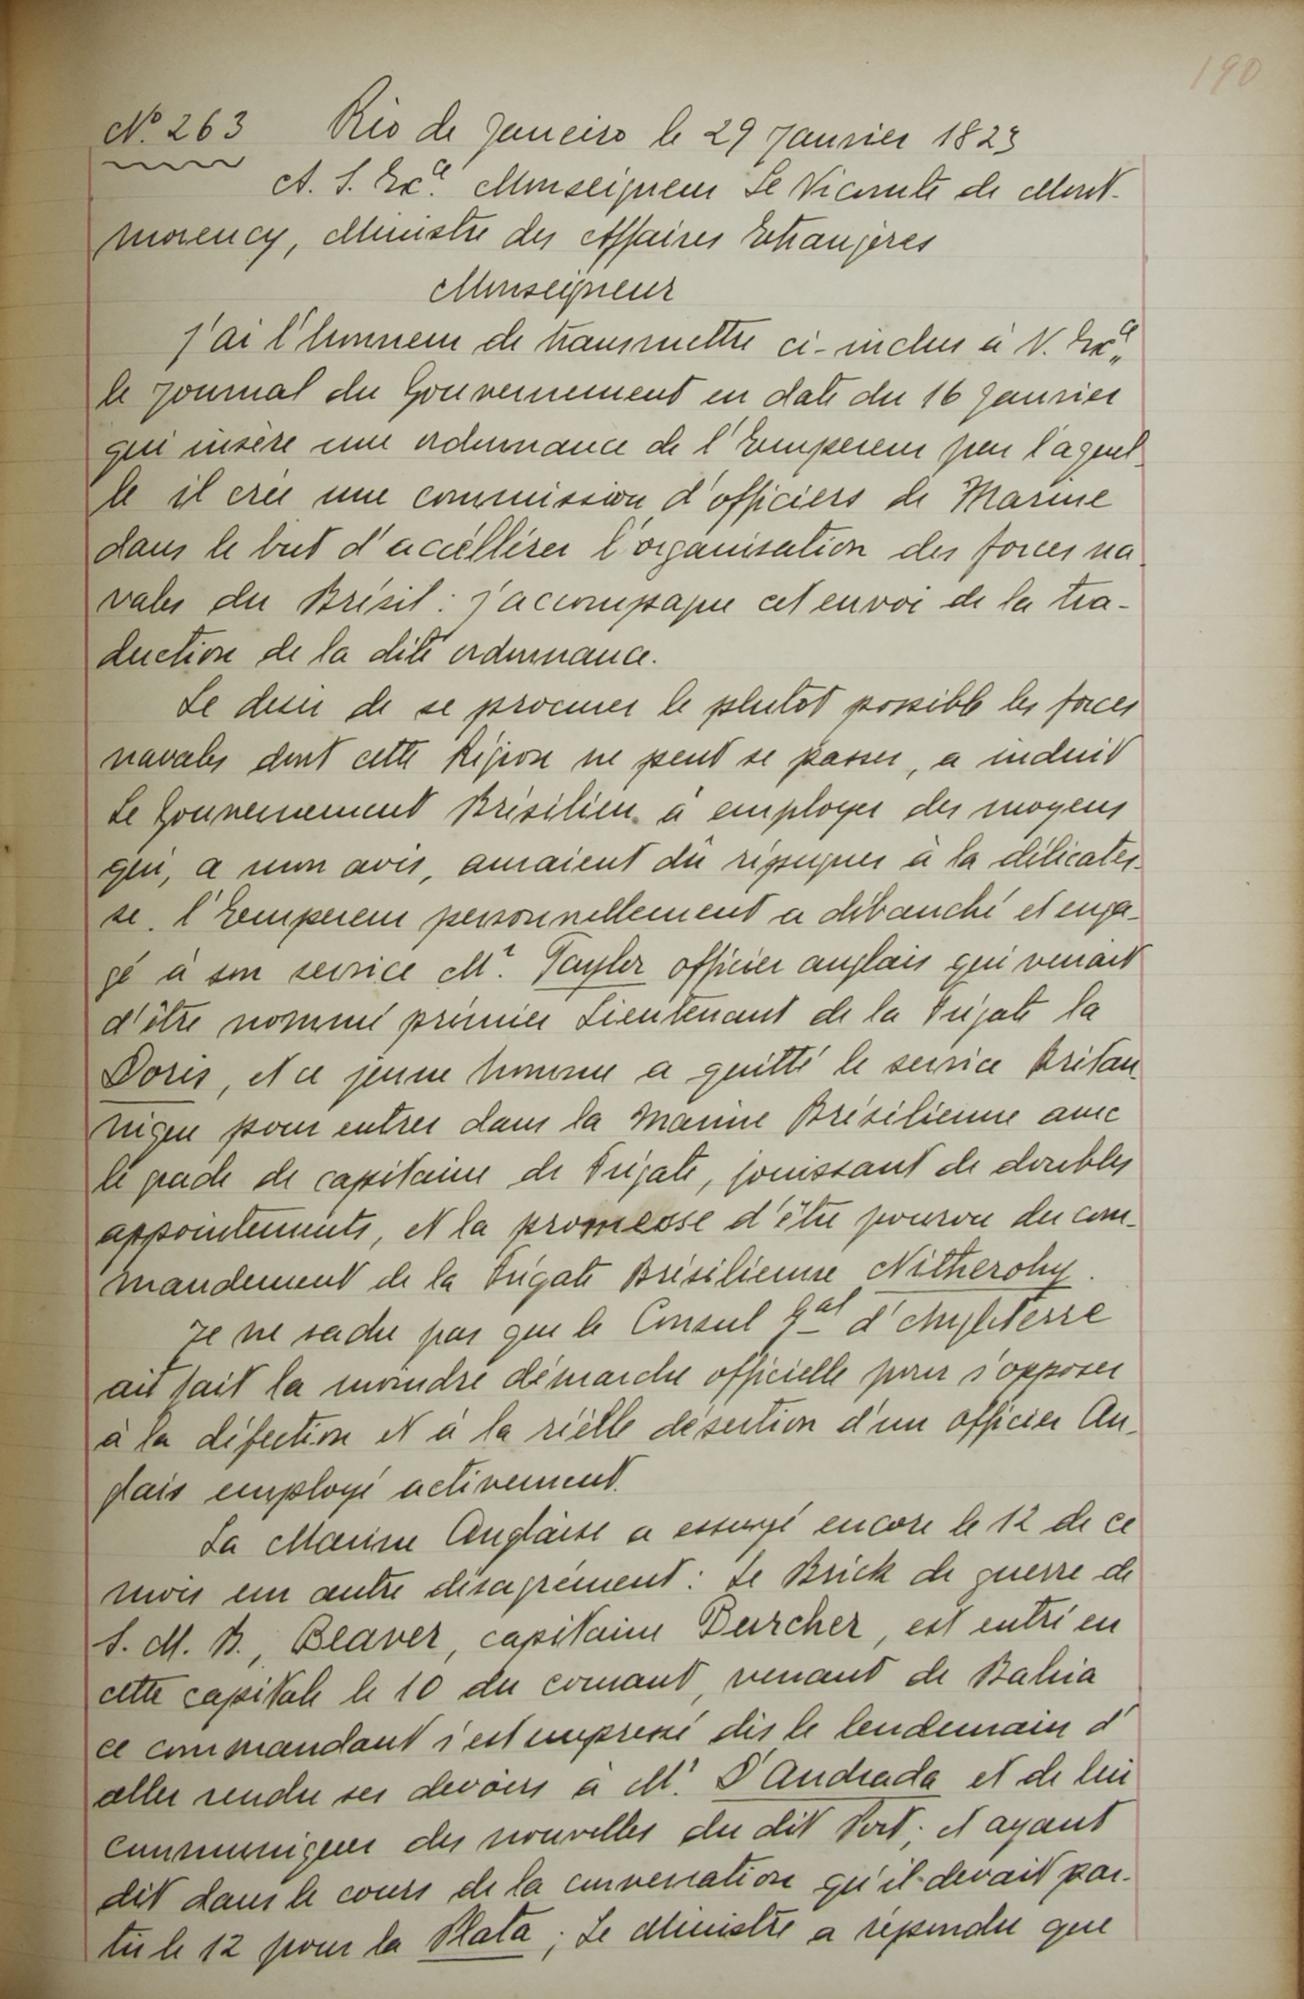 190
Nº 263 Rio de Janeiro le 29 Janvier 1823
A. S. Exce. Monseigneur Le Vicomte de Mont-
morency, Ministre des Affaires Etrangères
Monseigneur
J'ai l'honneur de transmettre ci-inclus à V. Exce.
le journal du Gouvernement en date du 16 Janvier
qui insère une ordonnance de l'Empereur par laquel-
le il crée une commission d'officiers de Marine
dans le but d'accéllérer l'organisation des forces na-
vales du Brésil: j'accompagne cet envoi de la tra-
duction de la dite ordonnance.
Le desir de se procurer le plutot possible les forces
navales dont cette Région ne peut se passer, a induit
Le Gouvernement Brésilien à employer des moyens
qui, a mon avis, auraient dû répugner à la délicates-
se. l'Empereur personnellement a débauché et enga-
gé à son service Mr. Taylor officier anglais qui venait
d'être nommé prémier Lieutenant de la Frégate la
Doris, et ce jeune homme a quitté le service Britan-
nique pour entrer dans la Marine Brésilienne avec
le grade de capitaine de Frégate, jouissant de doubles
appointements, et la promesse d'être pourvu du com-
mandement de la Frégate Brésilienne Nitherohy.
Je ne sache pas que le Consul Gal d'Angleterre
ait fait la moindre démarche officielle pour s'opposer
à la défection et à la réelle désertion d'un officier An-
glais employé activement.
La Marine Anglaise a essuyé encore le 12 de ce
mois un autre désagrément: Le Brick de guerre de
S. M. B., Beaver, capitaine Burcher, est entré en
cette capitale le 10 du courant, venant de Bahia
ce commandant s'est empressé dès le lendemain d'
aller rendre ses devoirs à Mr. D'Andrada et de lui
communiquer des nouvelles du dit Port; et ayant
dit dans le cours de la conversation qu'il devait par-
tir le 12 pour la Plata; Le Ministre a répondu que